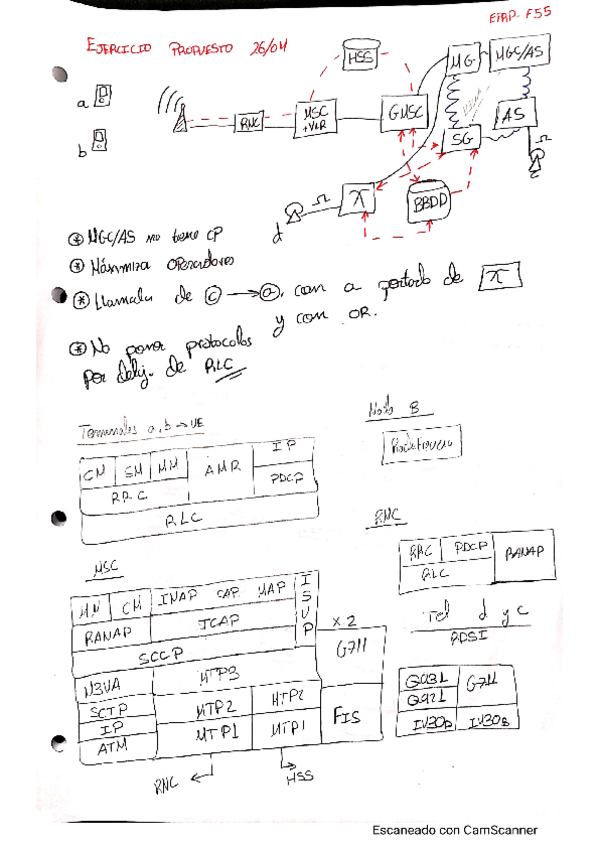 EIRP-F55
EJERCICIO PROPUESTO 26/04
HSS
MG
MGS/AS
a
RNC
MSC
+VLR
GMSC
AS
b
SG
Ω
c
Ω
BBDD
d
* MGC/AS no tiene CP
* Maximiza operadores
* Llamada de c → a, con a portado de
y con OR.
* No poner protocolos
por debj. de RLC
Terminales a, b → UE
Nodo B
CM SM MM AMR IP
RRC PDCP
RLC
Radiofrecuencia
RNC
RRC PDCP RANAP
RLC
MSC
MM CM INAP CAP MAP ISUP
RANAP TCAP
SCCP
x2
G711
M3UA MTP3
SCTP MTP2 MTP2
IP
ATM MTP1 MTP1
FIS
RNC
HSS
Tel d y c
RDSI
Q931 G711
Q921
I430D I430B
Escaneado con CamScanner